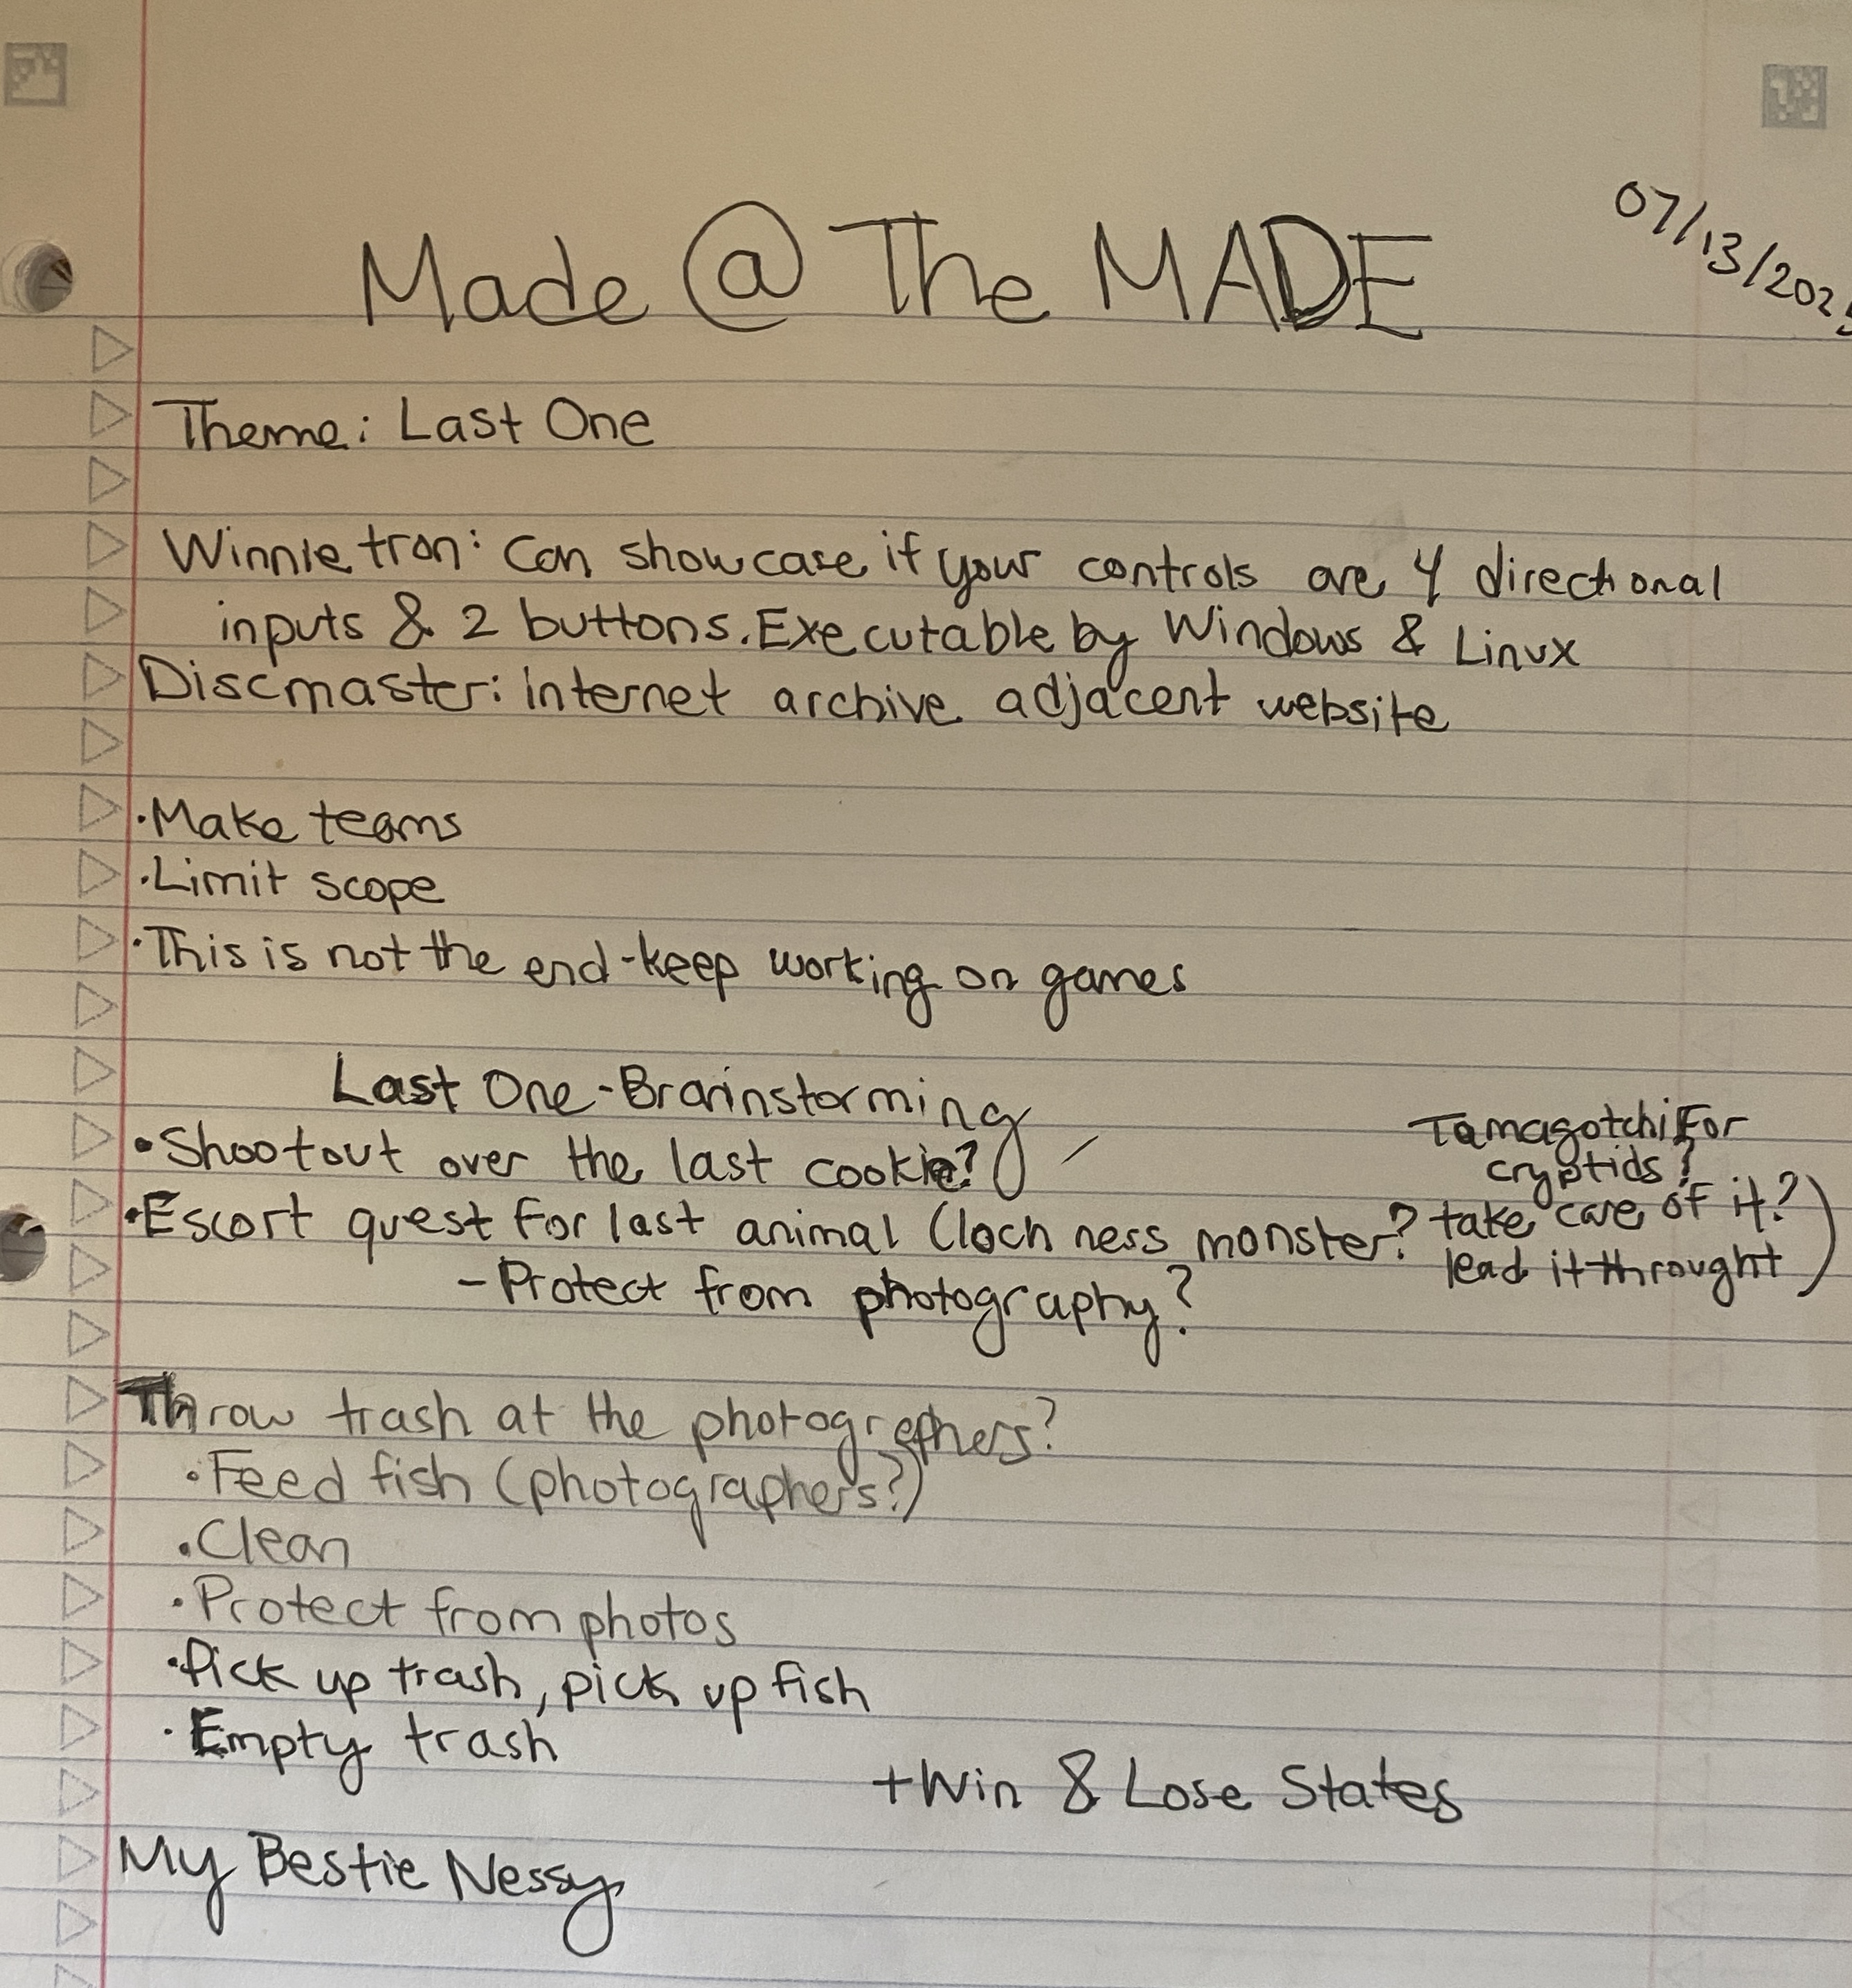 Made @ The MADE
07/13/2025
Theme: Last One
Winnie tron: Can showcase if your controls are 4 directional
inputs & 2 buttons. Executable by Windows & Linux
Discmaster: internet archive adjacent website
·Make teams
·Limit scope
·This is not the end-keep working on games
Last One-Brainstorming
•Shootout over the last cookie?
Tamagotchi For
cryptids?
•Escort quest for last animal (loch ness monster? take care of it?
lead it throught)
-Protect from photography?
Throw trash at the photographers?
·Feed fish (photographers?)
·Clean
·Protect from photos
·Pick up trash, pick up fish
·Empty trash
+Win & Lose States
My Bestie Nessy